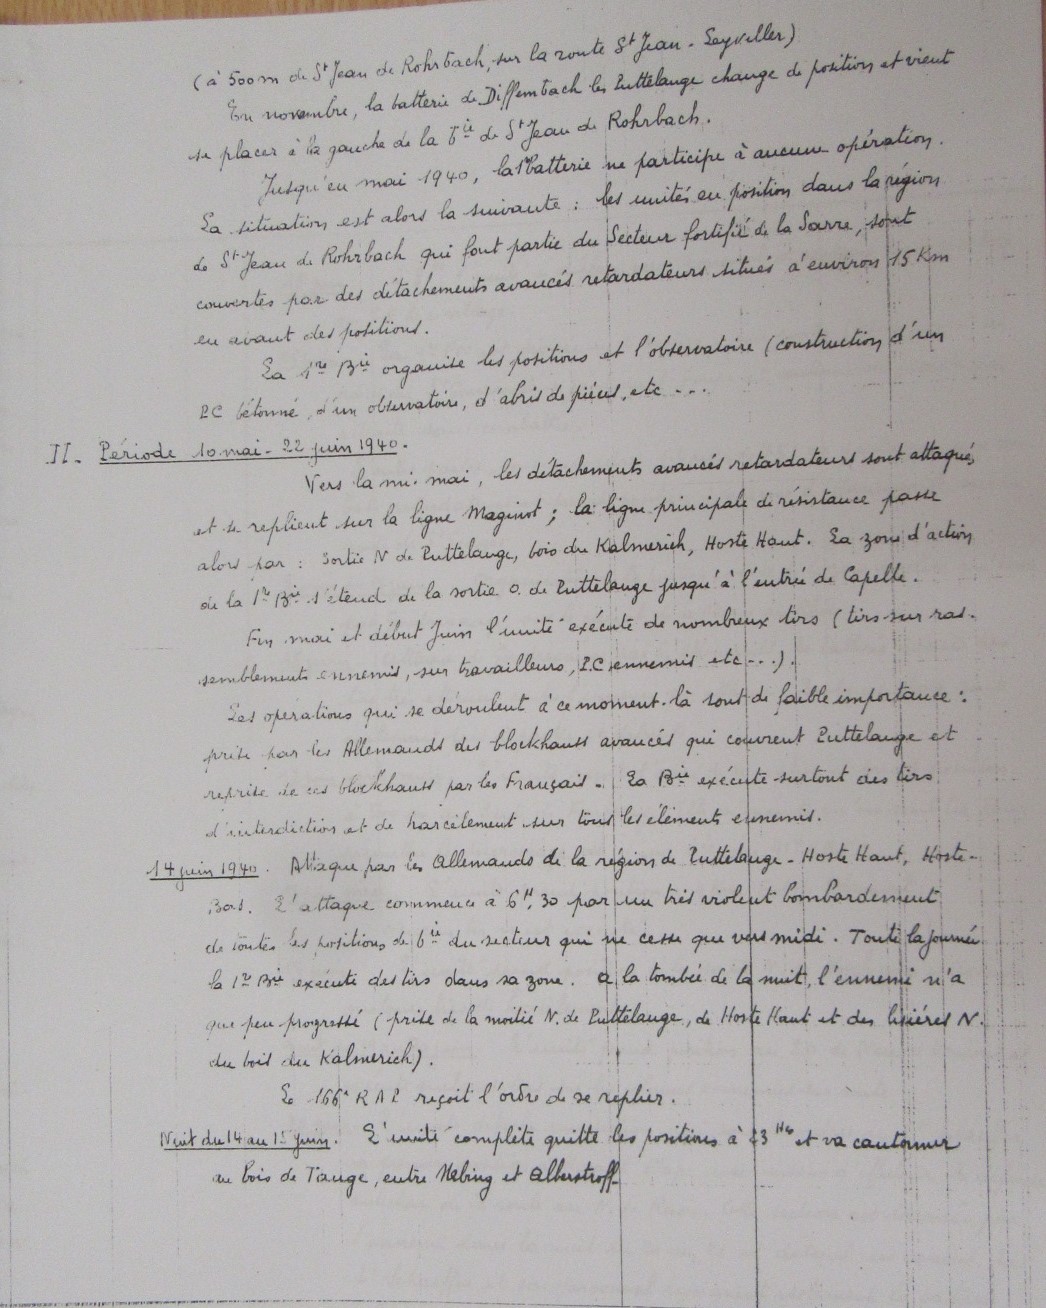 (à 500m de St Jean de Rohrbach, sur la route St Jean - Leyviller)
En novembre, la batterie de Diffembach les Puttelange change de position et vient
se placer à la gauche de la Bie de St Jean de Rohrbach.
Jusqu'en mai 1940, la 1re batterie ne participe à aucune opération.
La situation est alors la suivante : les unités en position dans la région
de St Jean de Rohrbach qui font partie du Secteur fortifié de la Sarre, sont
couvertes par des détachements avancés retardateurs situés à environ 15 Km
en avant des positions.
La 1re Bie organise les positions et l'observatoire (construction d'un
PC bétonné, d'un observatoire, d'abris de pièces, etc ...
II. Période 10 mai - 22 juin 1940.
Vers la mi-mai, les détachements avancés retardateurs sont attaqués,
et se replient sur la ligne Maginot ; la ligne principale de résistance passe
alors par : Sortie N de Puttelange, bois du Kalmerich, Hoste Haut. La zone d'action
de la 1re Bie s'étend de la sortie O. de Puttelange jusqu'à l'entrée de Capelle.
Fin mai et début Juin l'unité exécute de nombreux tirs (tirs sur ras-
semblements ennemis, sur travailleurs, P.C ennemis etc ...).
Les opérations qui se déroulent à ce moment-là sont de faible importance :
prise par les Allemands des blockhauss avancés qui couvrent Puttelange et
reprise de ces blockhauss par les Français. La Bie exécute surtout des tirs
d'interdiction et de harcèlement sur tous les éléments ennemis.
14 juin 1940. Attaque par les Allemands de la région de Puttelange - Hoste Haut, Hoste-
Bas. L'attaque commence à 6H,30 par un très violent bombardement
de toutes les positions de bie du secteur qui ne cesse que vers midi. Toute la journée
la 1re Bie exécute des tirs dans sa zone. A la tombée de la nuit, l'ennemi n'a
que peu progressé (prise de la moitié N. de Puttelange, de Hoste Haut et des lisières N.
du bois du Kalmerich).
Le 166e R A P reçoit l'ordre de se replier.
Nuit du 14 au 15 juin. L'unité complète quitte les positions à 23 Hes et va cantonner
au bois de Tange, entre Nebing et Alberstroff